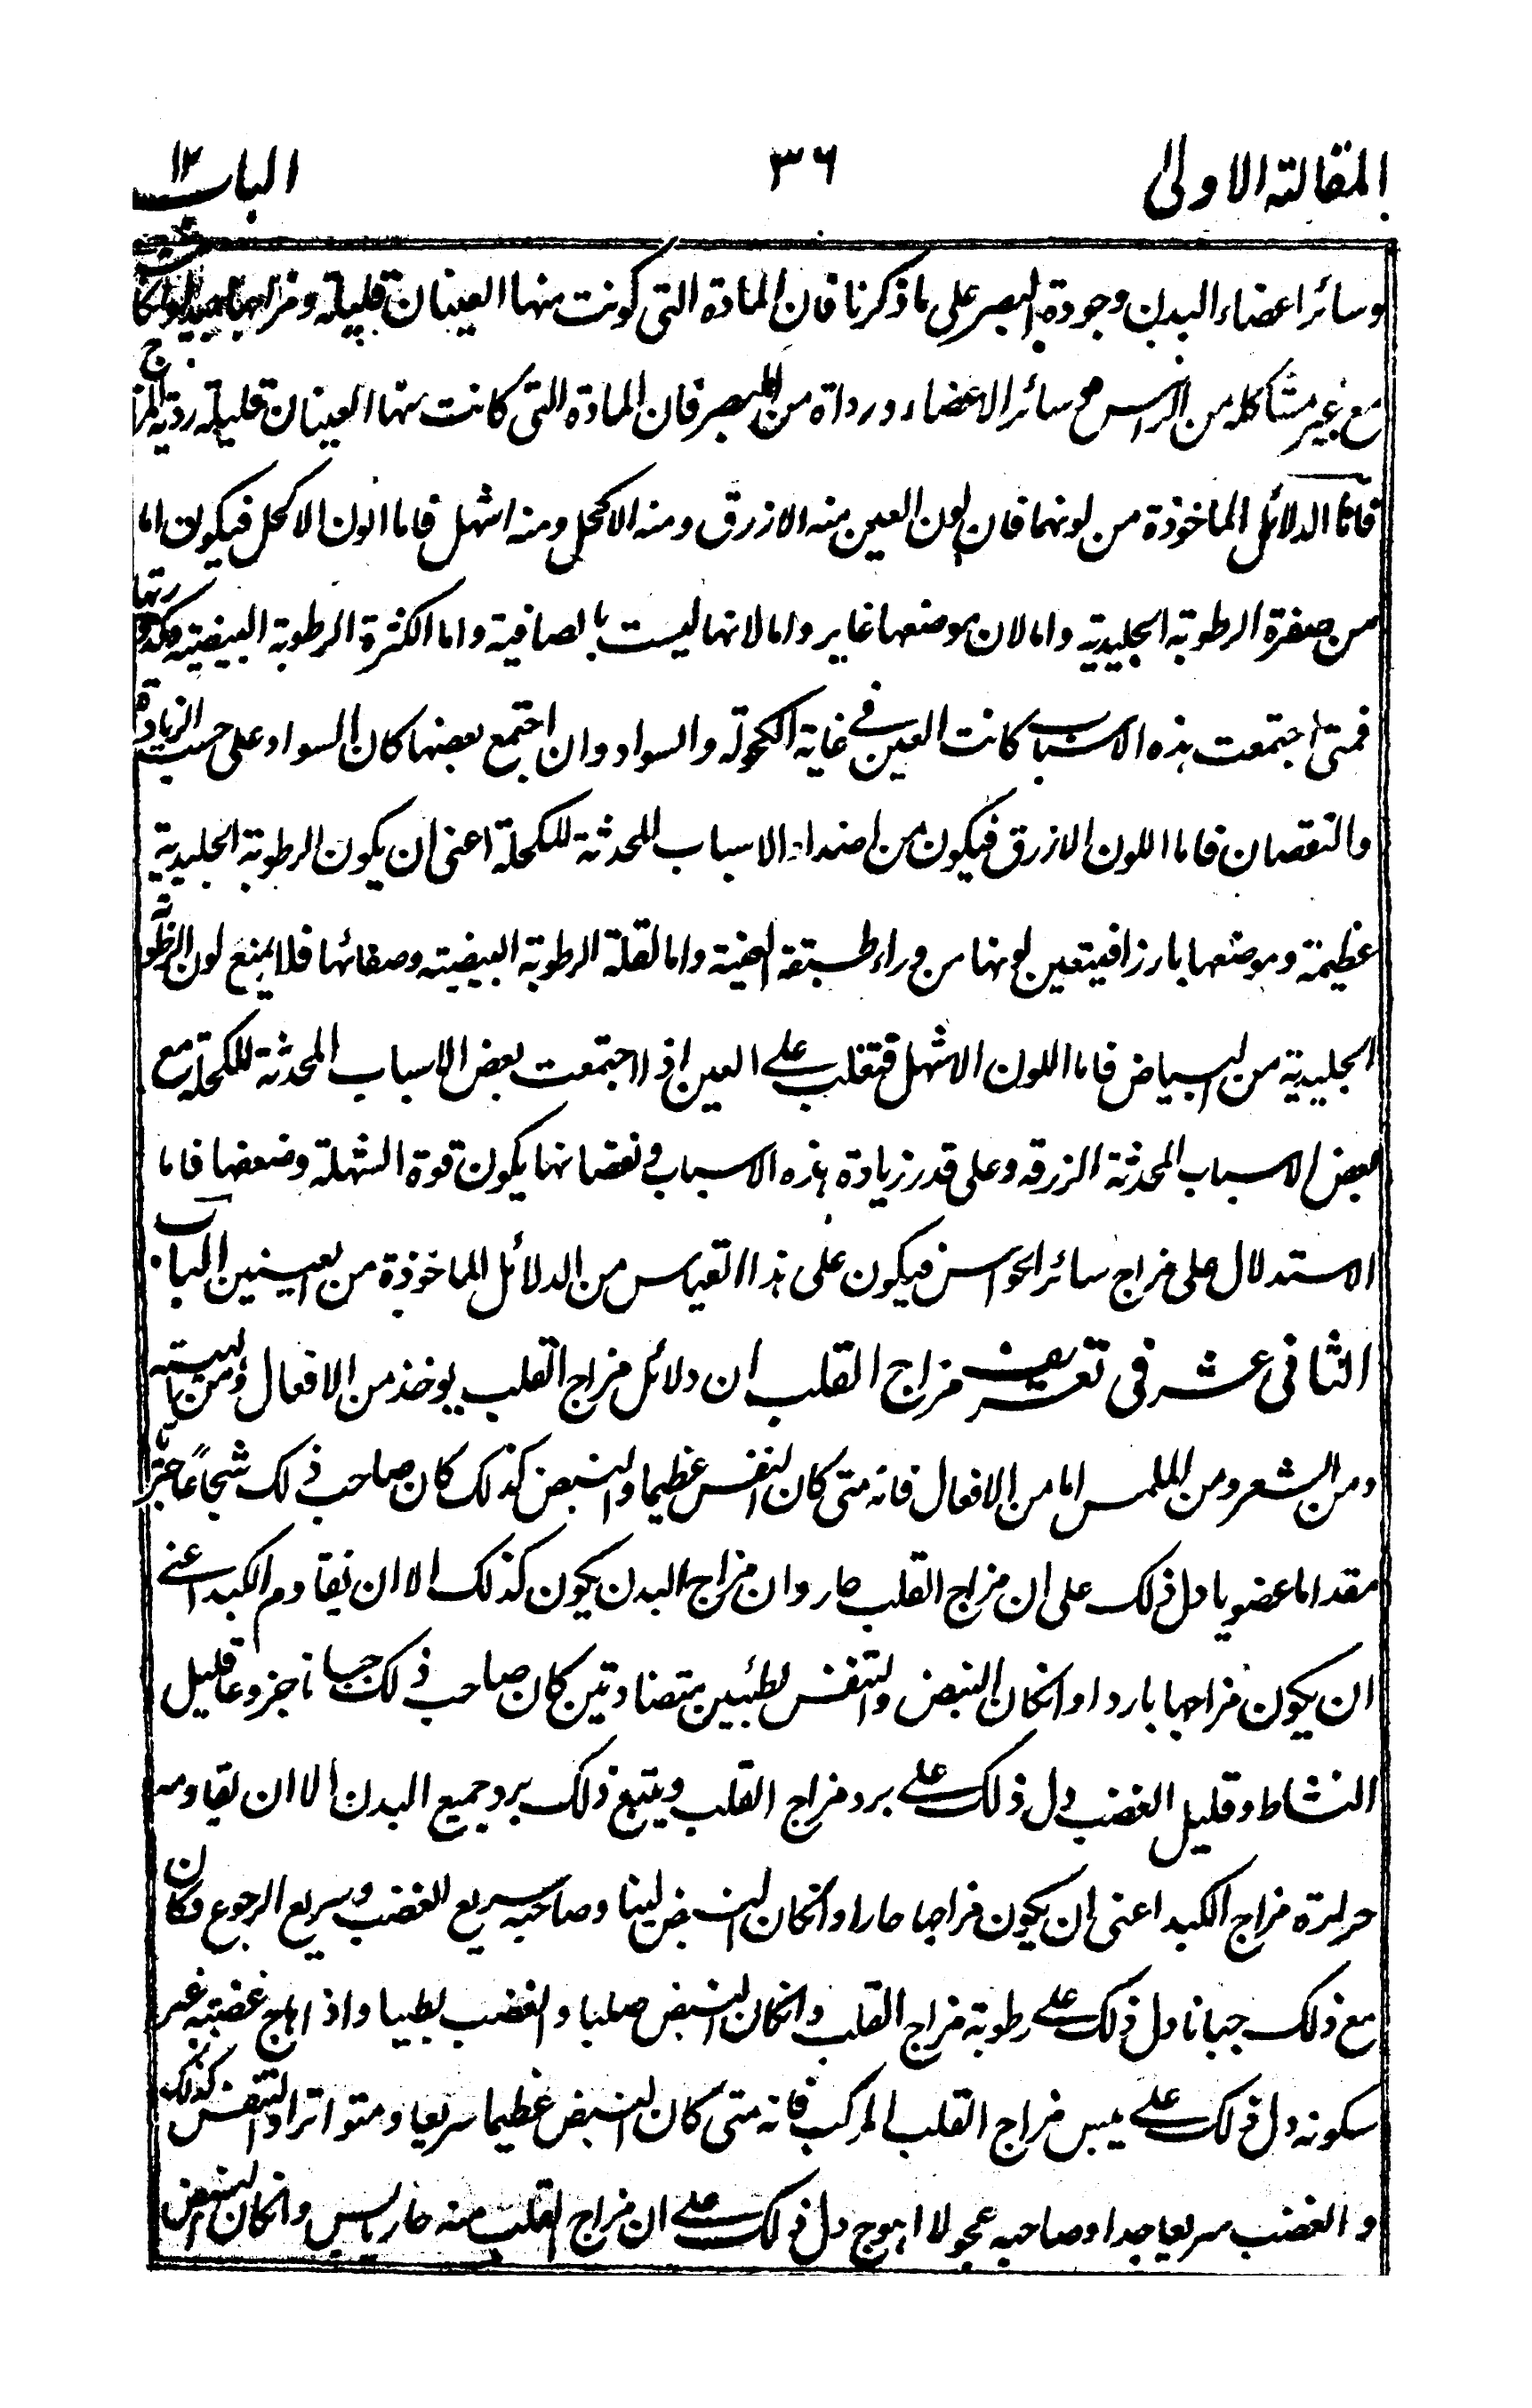 المقالة الاولى ٣٦ الباب ١٢
وسائر اعضاء البدن وجودة البصر على ما ذكرنا فان المادة التى كونت منها العينان قليلة ومزاجها
مع غير مشاكله من الراس مع سائر الاعضاء ورداة من البصر فان المادة التى كانت منها العينان قليلة ردية
فاما الدلائل الماخوذة من لونهما فان لون العين منه الازرق ومنه الاكحل ومنه اشهل فاما اللون الاكحل فيكون اما
من صغرة الرطوبة الجليدية واما لان موضعها غاير واما لانها ليست بالصافية واما الكثرة الرطوبة البيضية وكدورتها
فمتى اجتمعت هذه الاسباب كانت العين فى غاية الكحولة والسواد وان اجتمع بعضها كان السواد على حسب الزيادة
والنقصان فاما اللون الازرق فيكون من اضداد الاسباب المحدثة للكحلة اعنى ان يكون الرطوبة الجليدية
عظيمة وموضعها بارزا فيتعين لونها من وراء طبقة العنبة واما لقلة الرطوبة البيضية وصفائها فلا يمنع لون الرطوبة
الجليدية من البياض فاما اللون الاشهل فتغلب على العين اذا اجتمعت بعض الاسباب المحدثة للكحلة مع
بعض الاسباب المحدثة الزرقه وعلى قدر زيادة هذه الاسباب فى نقصانها يكون قوة الشهلة وضعفها فاما
الاستدلال على مزاج سائر الحواس فيكون على هذا القياس من الدلائل الماخوذة من العينين الباب
الثانى عشر فى تعريف مزاج القلب ان دلائل مزاج القلب يوخذ من الافعال ومن هيئته
ومن الشعر ومن الملمس اما من الافعال فانه متى كان النفس عظيما والنبض كذلك كان صاحب ذلك شجاعًا جريا
مقداما عضوبا دل ذلك على ان مزاج القلب حار وان مزاج البدن يكون كذلك الا ان يقاوم الكبد اعنى
ان يكون مزاجها باردا وانكان النبض والتنفس بطئيين متضادتين كان صاحب ذلك جبانا جزوعا قليل
النشاط وقليل الغضب دل ذلك على برد مزاج القلب ويتبع ذلك برد جميع البدن الا ان يقاومه
حرارة مزاج الكبد اعنى ان يكون مزاجها حارا وانكان النبض لينا وصاحبه سريع الغضب وسريع الرجوع وكان
مع ذلك جبانا دل ذلك على رطوبة مزاج القلب وانكان النبض صلبا والغضب بطيا واذا هاج غضبه عسر
سكونه دل ذلك على يبس مزاج القلب المركب فانه متى كان النبض عظيما سريعا ومتواترا والتنفس كذلك
والغضب سريعا جدا وصاحبه عجولا اهوج دل ذلك على ان مزاج القلب منه حار يابس وانكان النبض